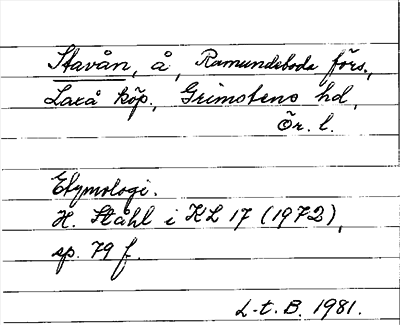 Stavån, å, Ramundeboda förs.,
Laxå köp., Grimstens hd,
Ör. l.
Etymologi.
H. Ståhl i KL 17 (1972),
sp. 79 f.
L-t. B. 1981.